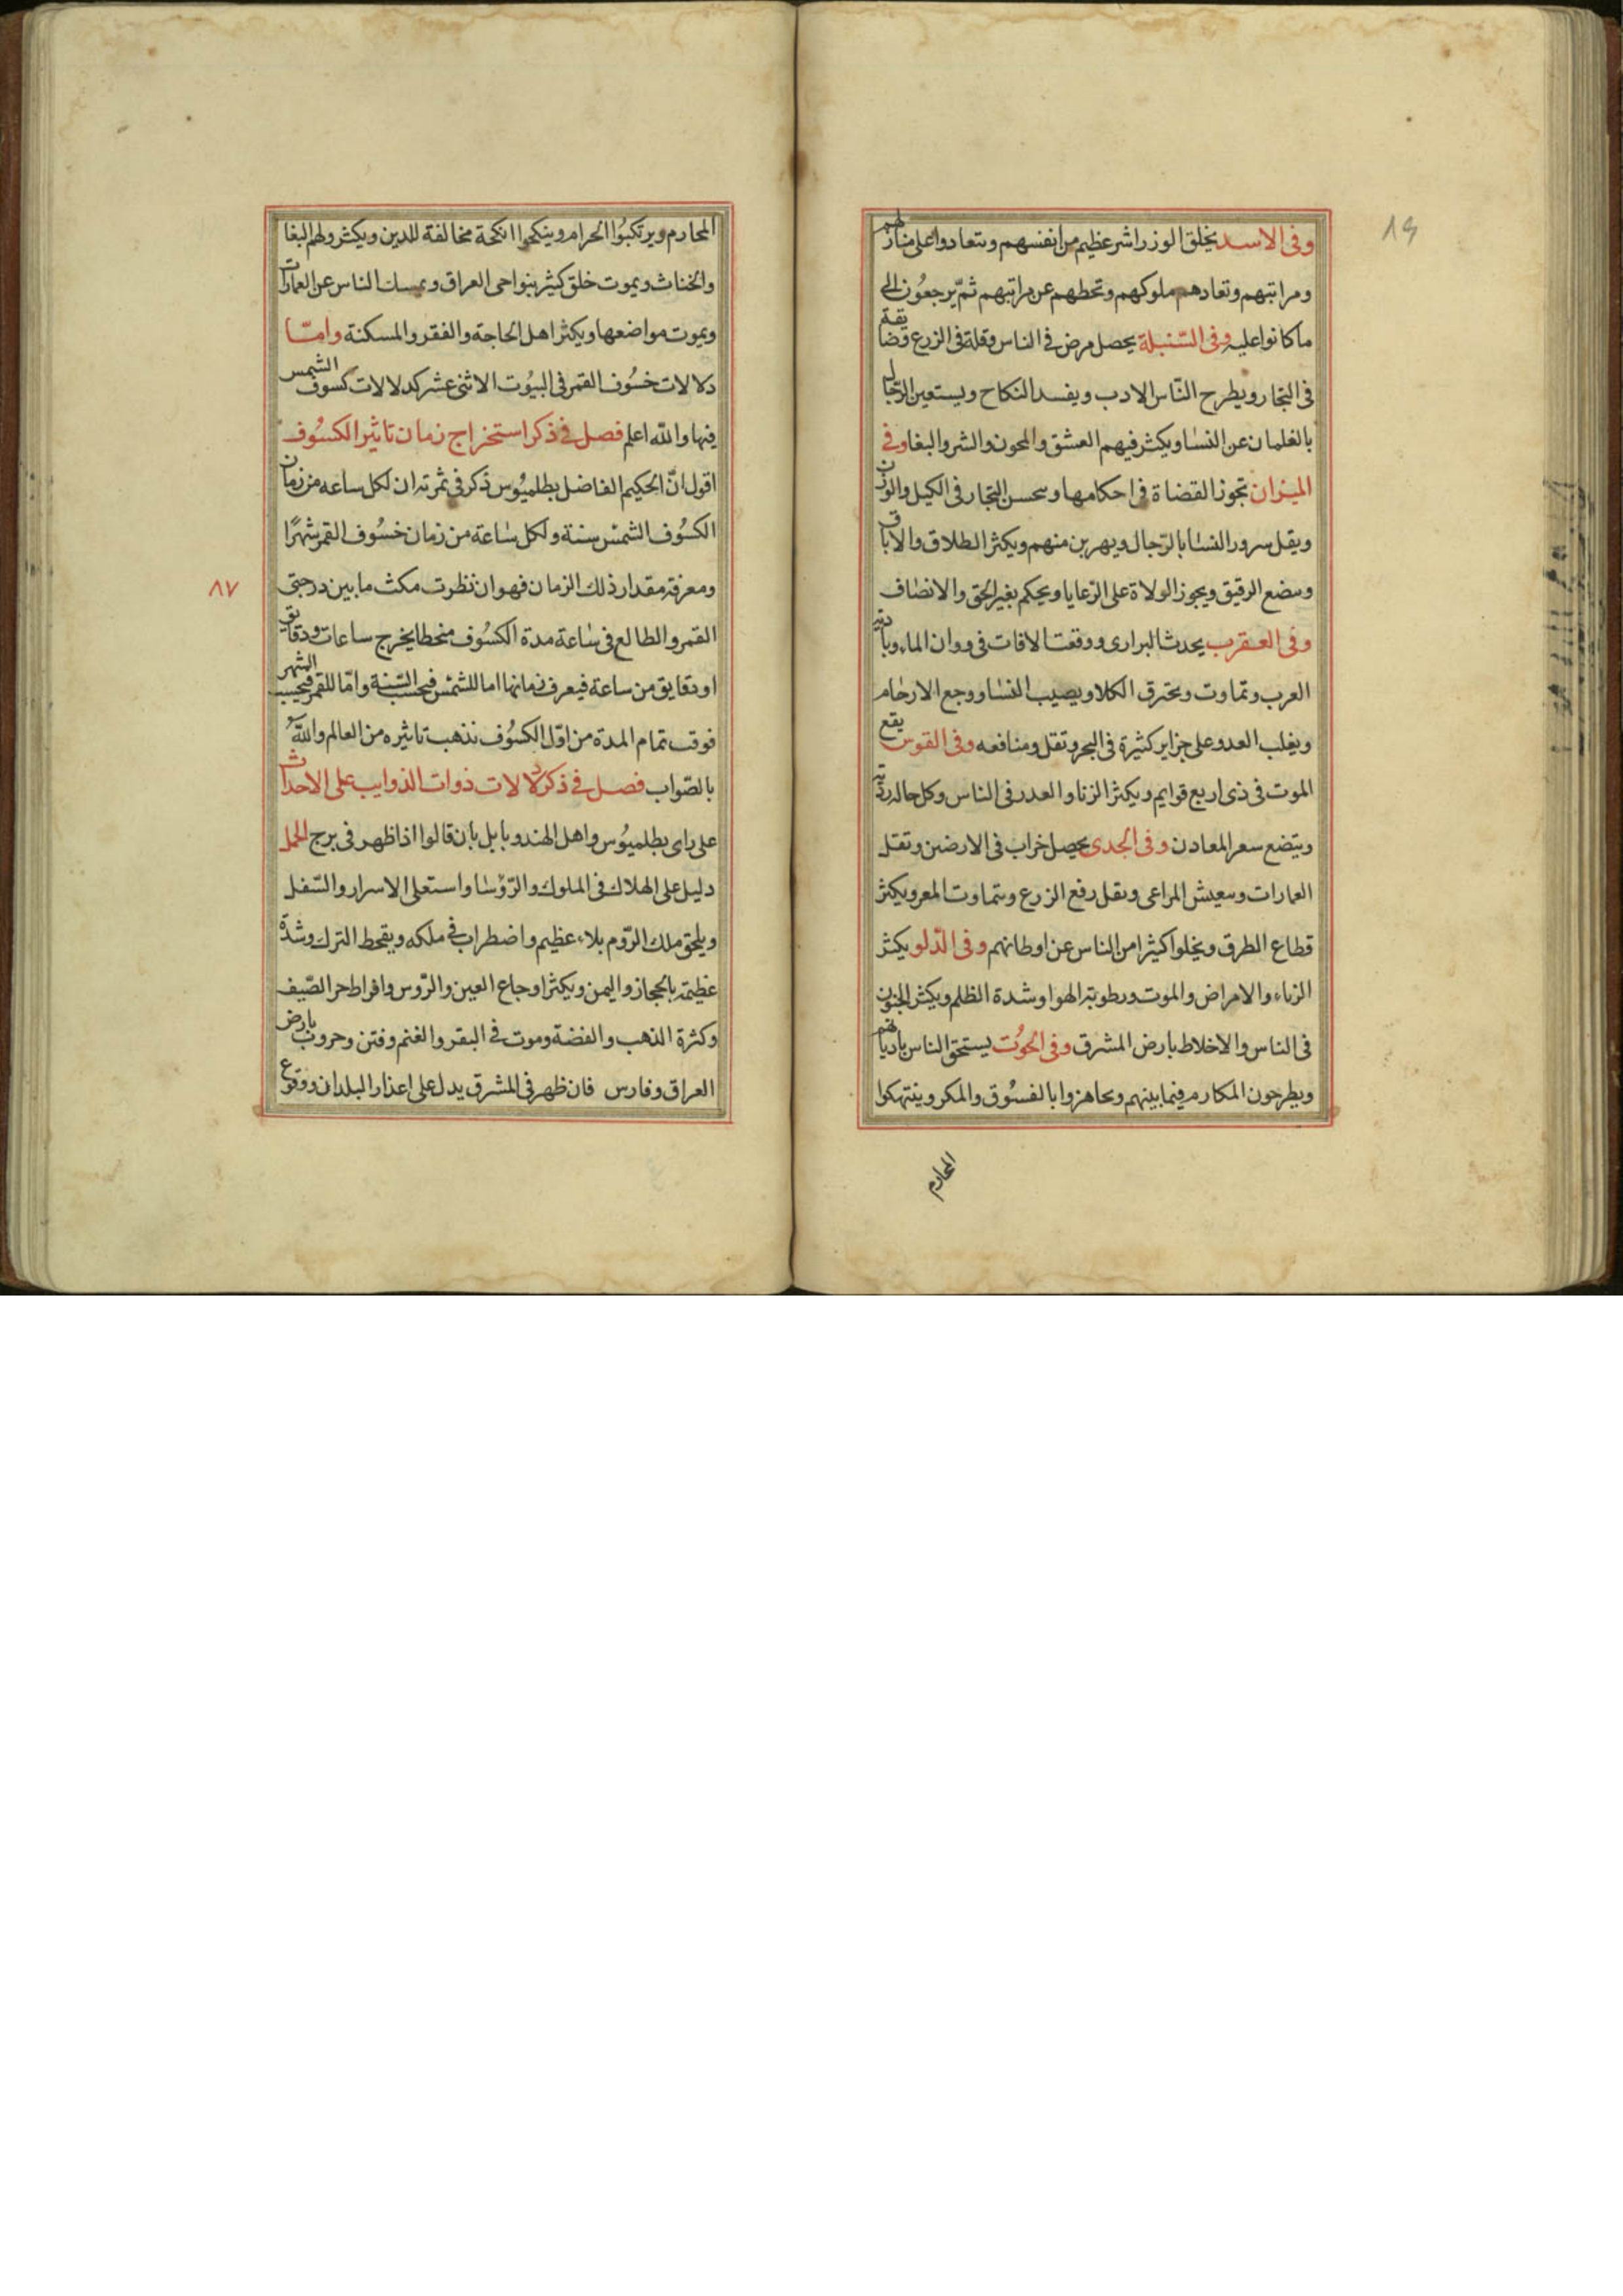 ٨٩
وفى الاسد يخلق الوزرا شر عظيم من انفسهم وتتعادوا على منازلهم
ومراتبهم وتعادهم ملوكهم وتحطهم عن مراتبهم ثم يرجعون الى
ما كانوا عليه وفى السنبلة يحصل مرض فى الناس وقلة فى الزرع وضايقة
فى التجار ويطرح النّاس الادب ويفسد النكاح ويستعين الرّجال
بالغلمان عن النسا ويكثر فيهم العشق والمجون والشر والبغا وفى
الميزان تجوز القضاة فى احكامها وسحسن التجار فى الكيل والوزن
ويقل سرور النسا بالرّجال ويهربن منهم ويكثر الطلاق والاباق
وسضع الرقيق ويجوز الولاة على الرّعايا ويحكم بغير الحق والانصاف
وفى العقرب يحدث البرارى ووقعت الافات فى ووان الماء
العرب وتماوت وتحترق الكلا ويصيب النسا ووجع الارحام
ويغلب العدو على جزاير كثيرة فى البحر وتقل ومنافعه وفى القوس يقع
الموت فى ذى اربع قوايم ويكثر الزنا والعدر فى الناس وكل حاله
ويتضع سعر المعادن وفى الجدى يحصل خراب فى الارضين وتقل
العمارات وسعيش المراعى وىقل رفع الزرع وتتماوت المعر ويكثر
قطاع الطرق ويخلوا كثيرا من الناس عن اوطانهم وفى الدّلو يكثر
الزناء والامراض والموت ورطوبة الهوا وشدة الظلم ويكثر الجنون
فى الناس والاخلاط بارض المشرق وفى الحوت يستحق الناس باديانهم
ويطرحون المكارم فيما بينهم وىجاهروا بالفسُوق والمكر وينتهكوا
المحارم
المحارم ويرتكبُوا الحرام وينكحوا انكحة مخالفة للدين ويكثر ولهم البغا
والخناث ويموت خلق كثير بنواحى العراق ويمسك الناس عن العمارات
ويموت مواضعها ويكثر اهل الحاجة والفقر والمسكنة وامّا
دلالات خسُوف القمر فى البيُوت الاثنى عشر كدلالات كسوف الشمس
فيها والله اعلم فصل فى ذكر استخراج زمان تاثير الكسُوف
اقول انّ الحكيم الفاضل بطلميُوس ذكر فى ثمرته ان لكل ساعه من زمان
الكسُوف الشمس سنة ولكل ساعة من زمان خسُوف القمر شهرًا
ومعرفة مقدار ذلك الزمان فهو ان نظرت مكث ما بين درجتى
القمر والطالع فى ساعة مدة الكسُوف منحطا يخرج ساعات ودقايق
او دقايق من ساعة فيعرف زمانها اما للشمس فيحسب السّنة وامّا للقمر فيحسب الشهر
فوقت تمام المدة من اوّل الكسُوف نذهب تاثيره من العالم والله
بالصّواب فصل فى ذكر دلالات ذوات الذوايب على الاحداث
على راى بطلميُوس واهل الهند وبابل بان قالوا اذا ظهر فى برج الحمل
دليل على الهلاك فى الملوك والرّؤسا واستعلى الاسرار والسّفل
ويلحق ملك الرّوم بلاء عظيم واضطراب فى ملكه ويقحط الترك وشدّة
عظيمة بالحجاز واليمن ويكثر اوجاع العين والرّوس وافراط حر الصّيف
وكثرة الذهب والفضة وموت فى البقر والغنم وفتن وحروب بارض
العراق وفارس فان ظهر فى المشرق يدل على اعذار البلدان ووقوع
٨٧